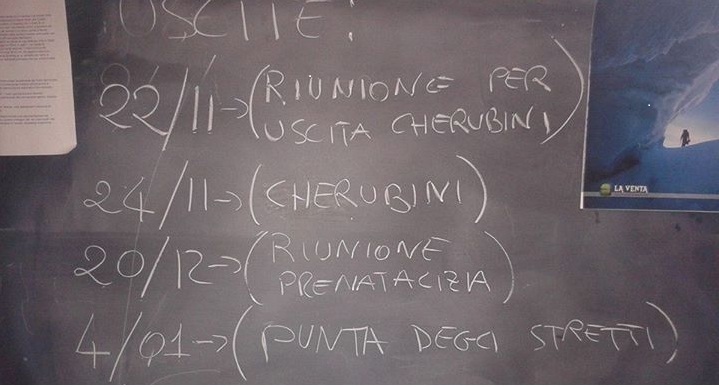 USCITE:
22/11→(RIUNIONE PER
USCITA CHERUBINI)
24/11→(CHERUBINI)
20/12→(RIUNIONE
PRENATALIZIA)
4/01→(PUNTA DEGLI STRETTI)
LA VENTA